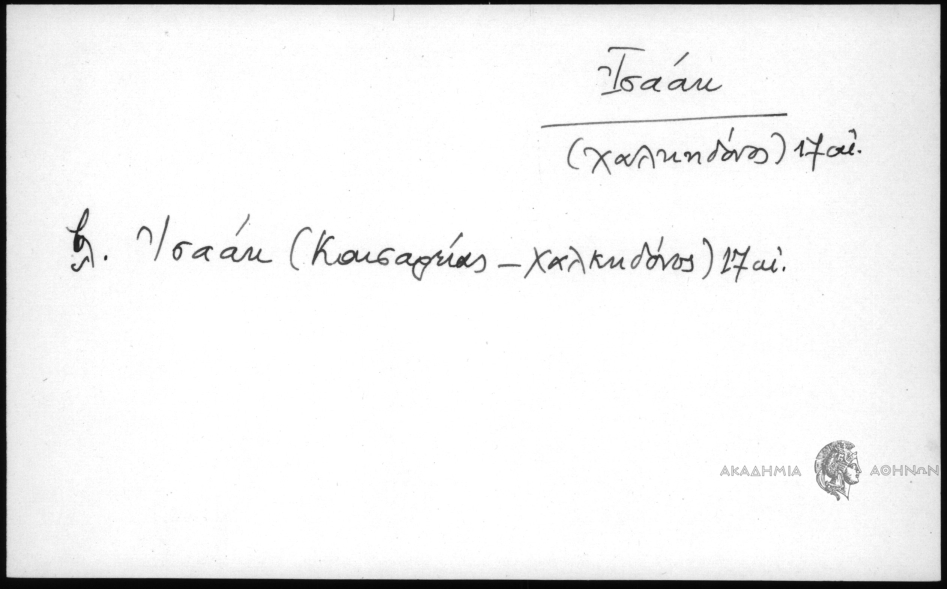 Ἰσαάκ
(Χαλκηδόνος) 17 αἰ.
βλ. Ἰσαάκ (Καισαρείας – Χαλκηδόνος) 17 αἰ.
ΑΚΑΔΗΜΙΑ ΑΘΗΝΩΝ